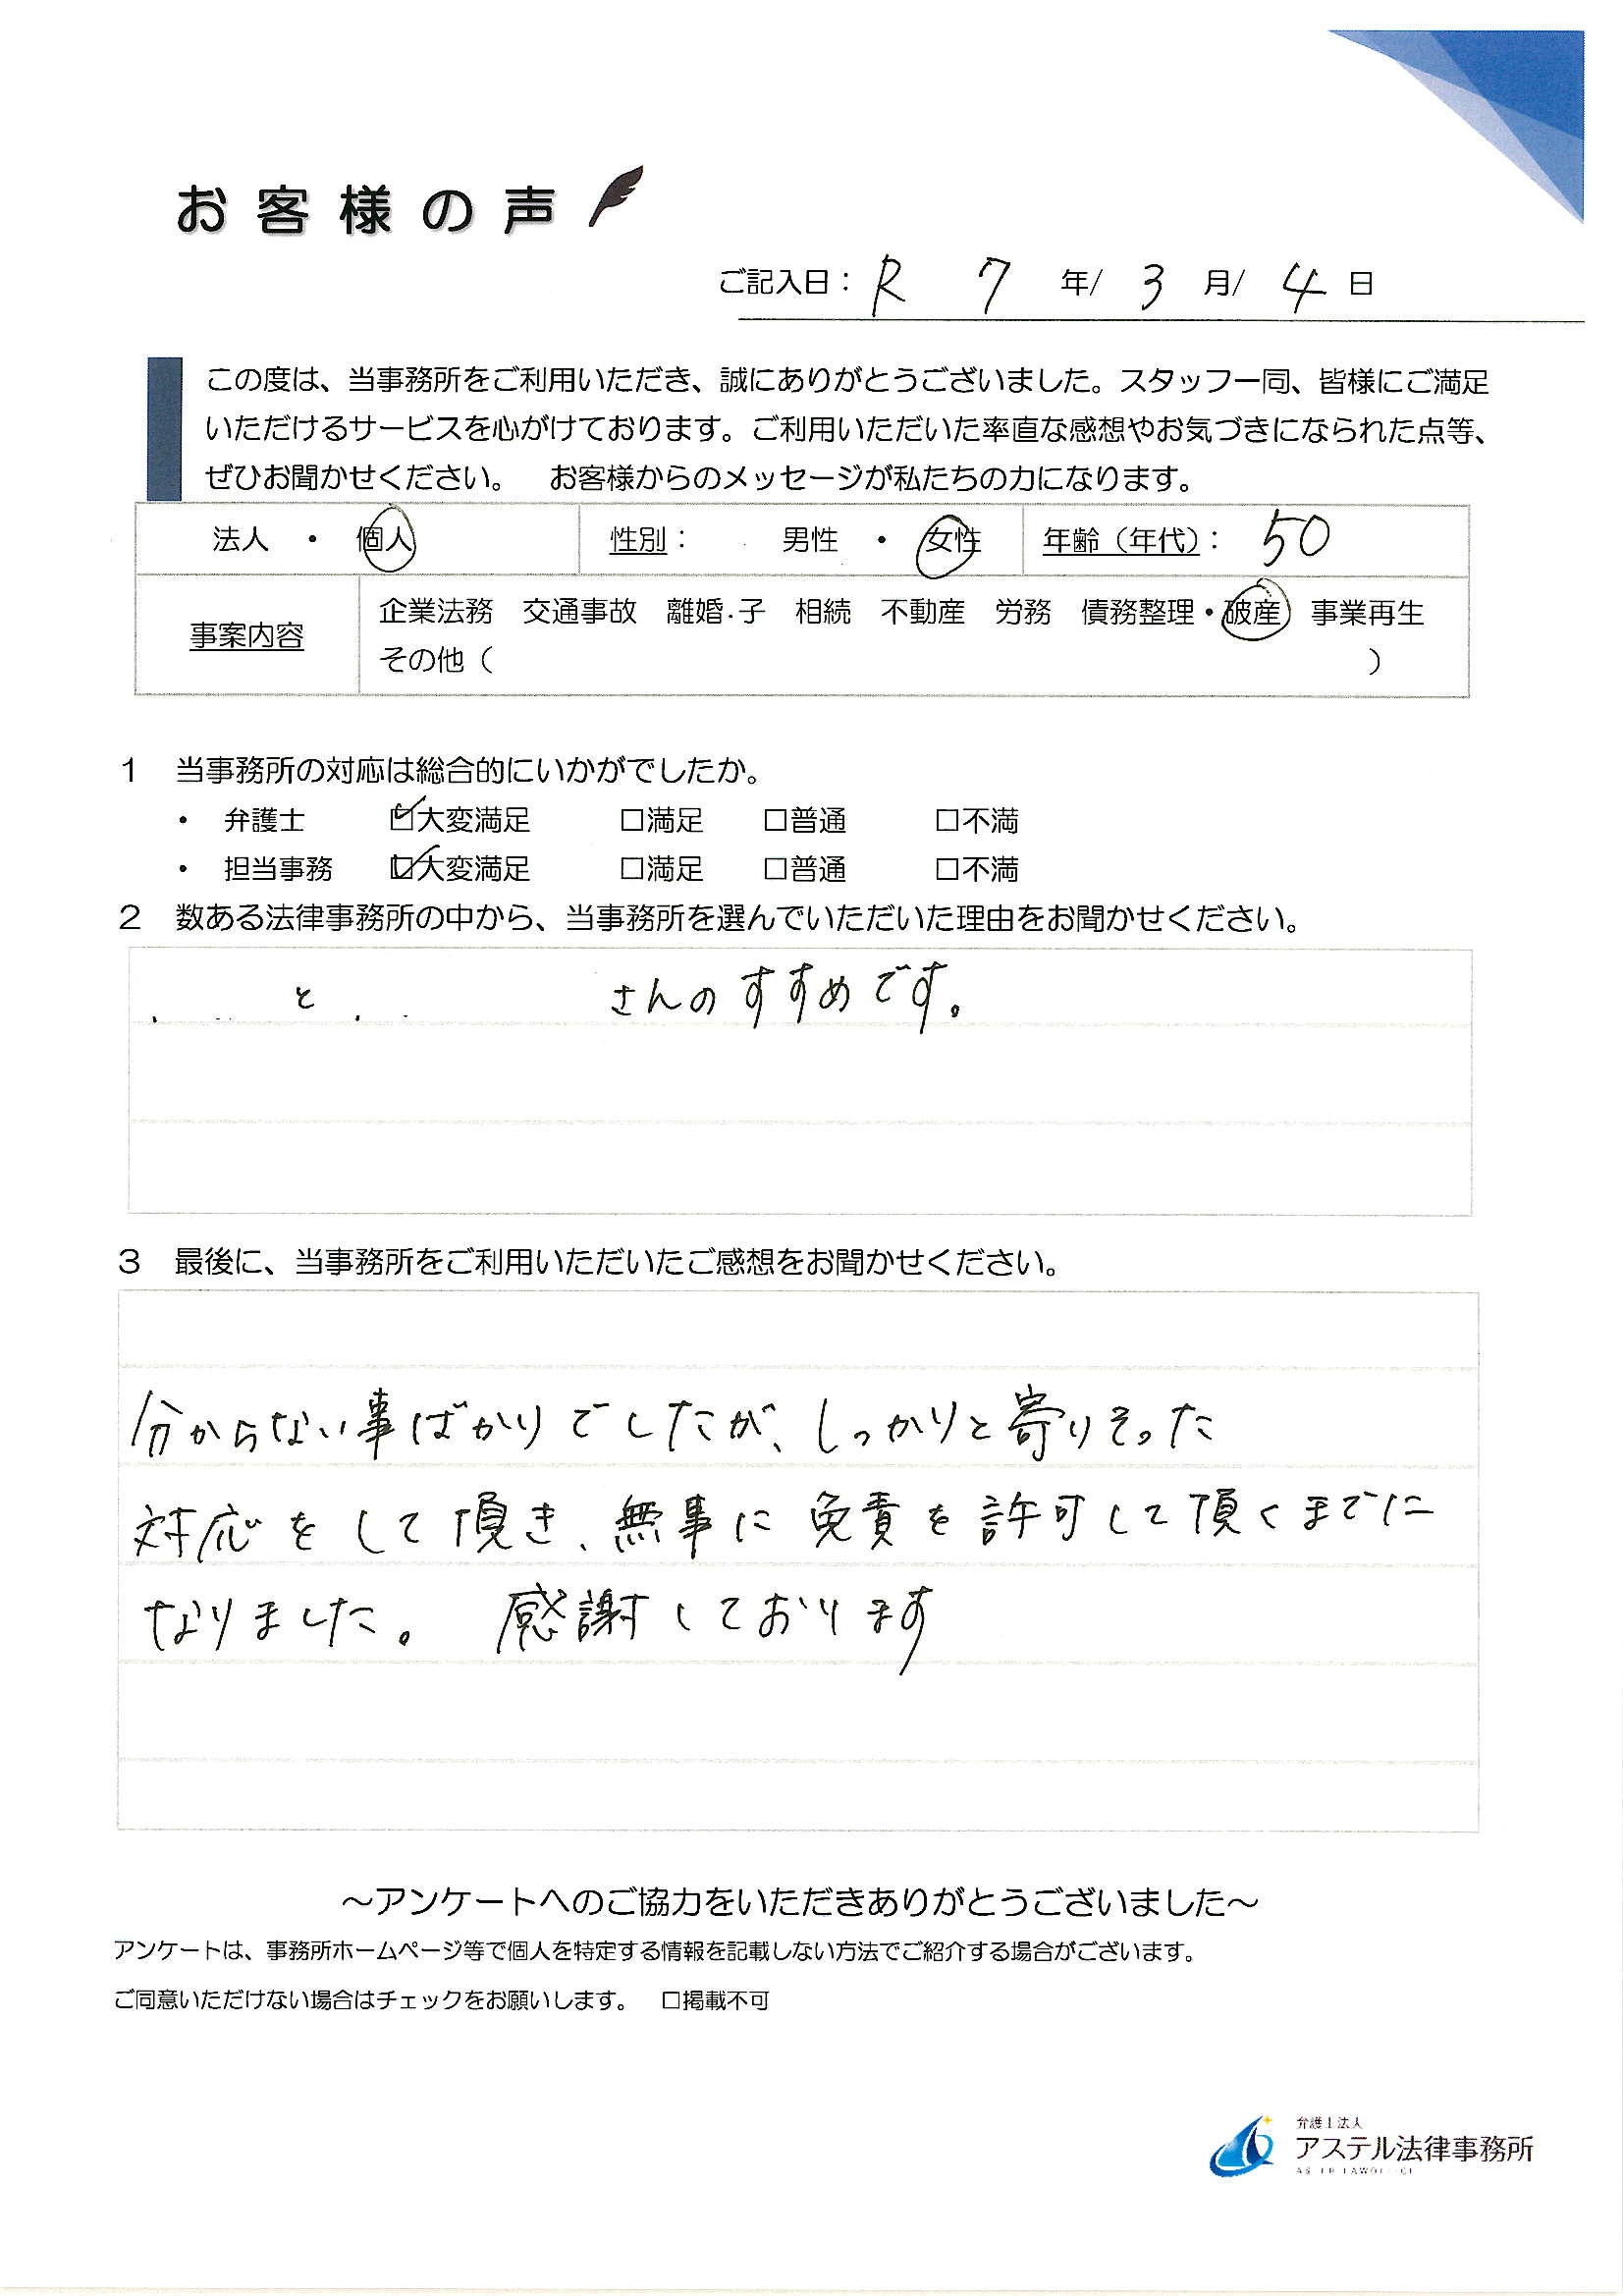 お客様の声
ご記入日： R 7 年/ 3 月/ 4 日
この度は、当事務所をご利用いただき、誠にありがとうございました。スタッフ一同、皆様にご満足
いただけるサービスを心がけております。ご利用いただいた率直な感想やお気づきになられた点等、
ぜひお聞かせください。　お客様からのメッセージが私たちの力になります。
法人 ・ 個人 性別： 男性 ・ 女性 年齢（年代）： 50
事案内容
企業法務 交通事故 離婚・子 相続 不動産 労務 債務整理・破産 事業再生
その他（ ）
1 当事務所の対応は総合的にいかがでしたか。
・ 弁護士 ☑大変満足 □満足 □普通 □不満
・ 担当事務 ☑大変満足 □満足 □普通 □不満
2 数ある法律事務所の中から、当事務所を選んでいただいた理由をお聞かせください。
と さんのすすめです。
3 最後に、当事務所をご利用いただいたご感想をお聞かせください。
分からない事ばかりでしたが、しっかりと寄りそった
対応をして頂き、無事に免責を許可して頂くまでに
なりました。 感謝しております
～アンケートへのご協力をいただきありがとうございました～
アンケートは、事務所ホームページ等で個人を特定する情報を記載しない方法でご紹介する場合がございます。
ご同意いただけない場合はチェックをお願いします。 □掲載不可
弁護士法人
アステル法律事務所